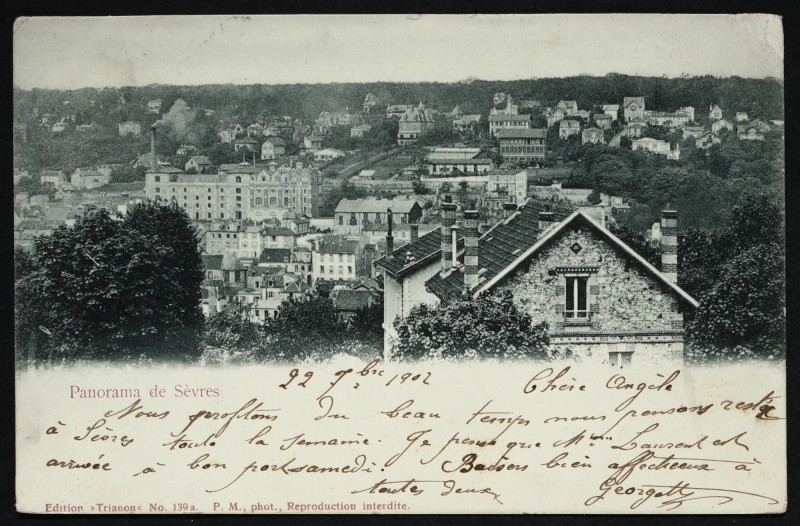 Panorama de Sèvres
22 7bre 1902 Chère Angèle
Nous profitons du beau temps nous pensons rester
à Sèvres toute la semaine. Je pense que Mme Laurent est
arrivée à bon port samedi. Baisers bien affectueux à
toutes deux
Georgette
Edition »Trianon« No. 139a. P. M., phot., Reproduction interdite.